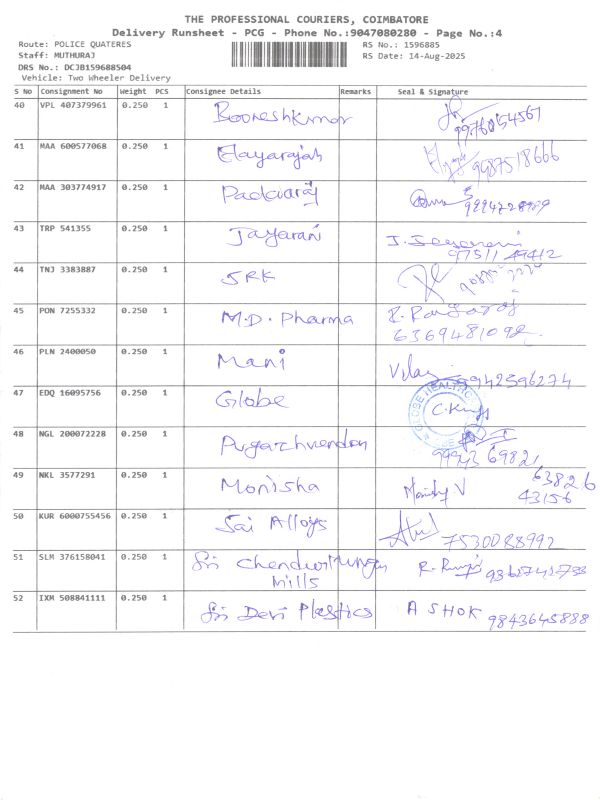 THE PROFESSIONAL COURIERS, COIMBATORE
Delivery Runsheet - PCG - Phone No.:9047080280 - Page No.:4
Route: POLICE QUATERES RS No.: 1596885
Staff: MUTHURAJ RS Date: 14-Aug-2025
DRS No.: DCJB159688504
Vehicle: Two Wheeler Delivery
S No Consignment No Weight PCS Consignee Details Remarks Seal & Signature
40 VPL 407379961 0.250 1 Booneshkumar
41 MAA 600577068 0.250 1 Elayarajah 9487518666
42 MAA 303774917 0.250 1
43 TRP 541355 0.250 1 Jayarani J. Jayarani
97511 49412
44 TNJ 3383887 0.250 1 SRK
45 PON 7255332 0.250 1 M.D. Pharma R. Rangaraj
6369481092
46 PLN 2400050 0.250 1 Mani 9942596274
47 EDQ 16095756 0.250 1 Globe
48 NGL 200072228 0.250 1 Pugazhvendan
49 NKL 3577291 0.250 1 Monisha V 63826
43156
50 KUR 6000755456 0.250 1 Sai Alloys 7530088992
51 SLM 376158041 0.250 1 Sri
Mills
52 IXM 508841111 0.250 1 Sri Devi Plastics ASHOK 9843645888